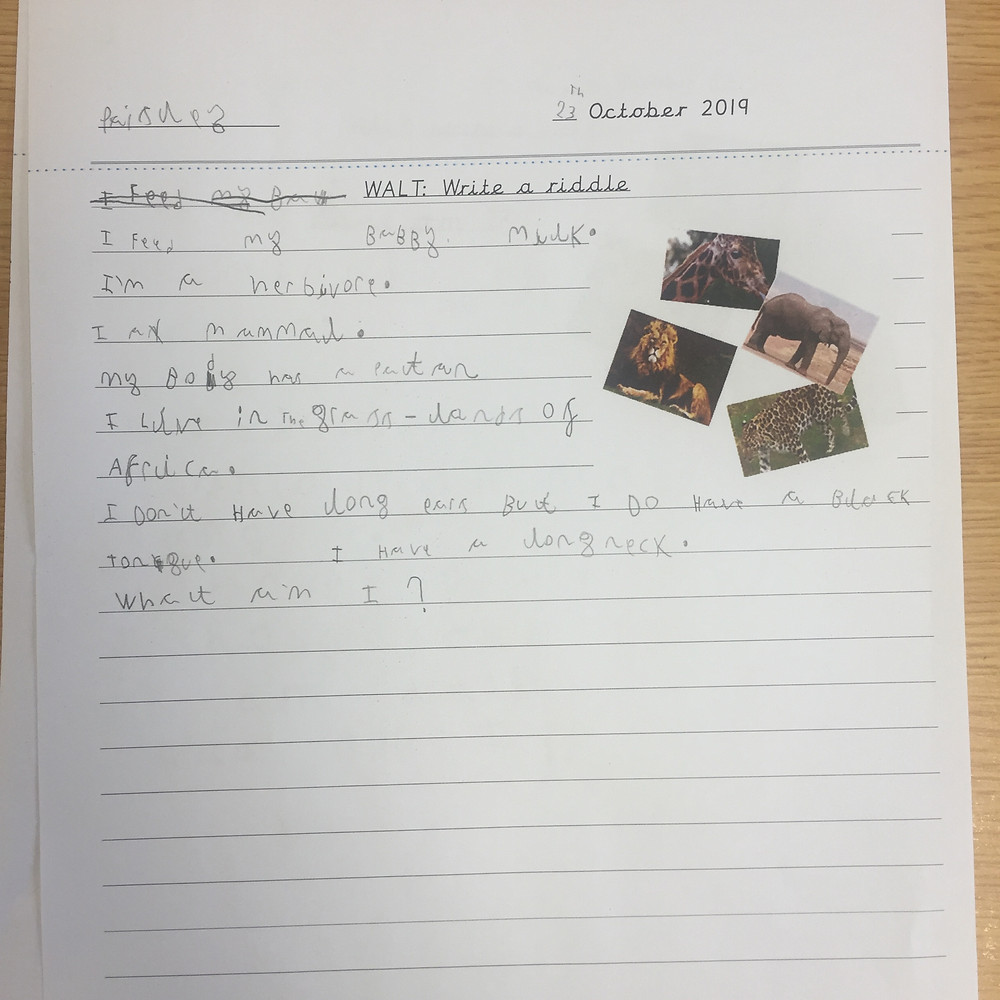 23 Th October 2019
WALT: Write a riddle
I Feed my
I Feed my BaBBy. Milk.
I'm a herbivore.
I am mammal.
my Body has a
I Live in The grass-lands Of
Africa.
I Don't Have long ears But I DO Have a Black
Tongue. I Have a long neck.
What a'm I ?